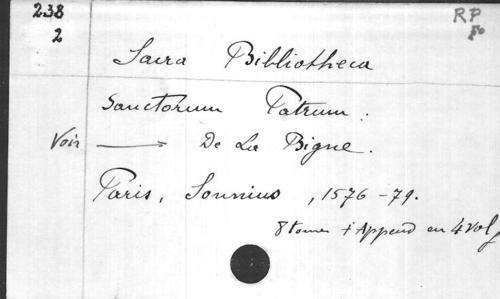 238
2
RP
Fo
Sacra Bibliotheca
Sanctorum Patrum.
Voir → De La Bigne.
Paris, Sonnius, 1576-79.
8 tomes + Append en 4 vol